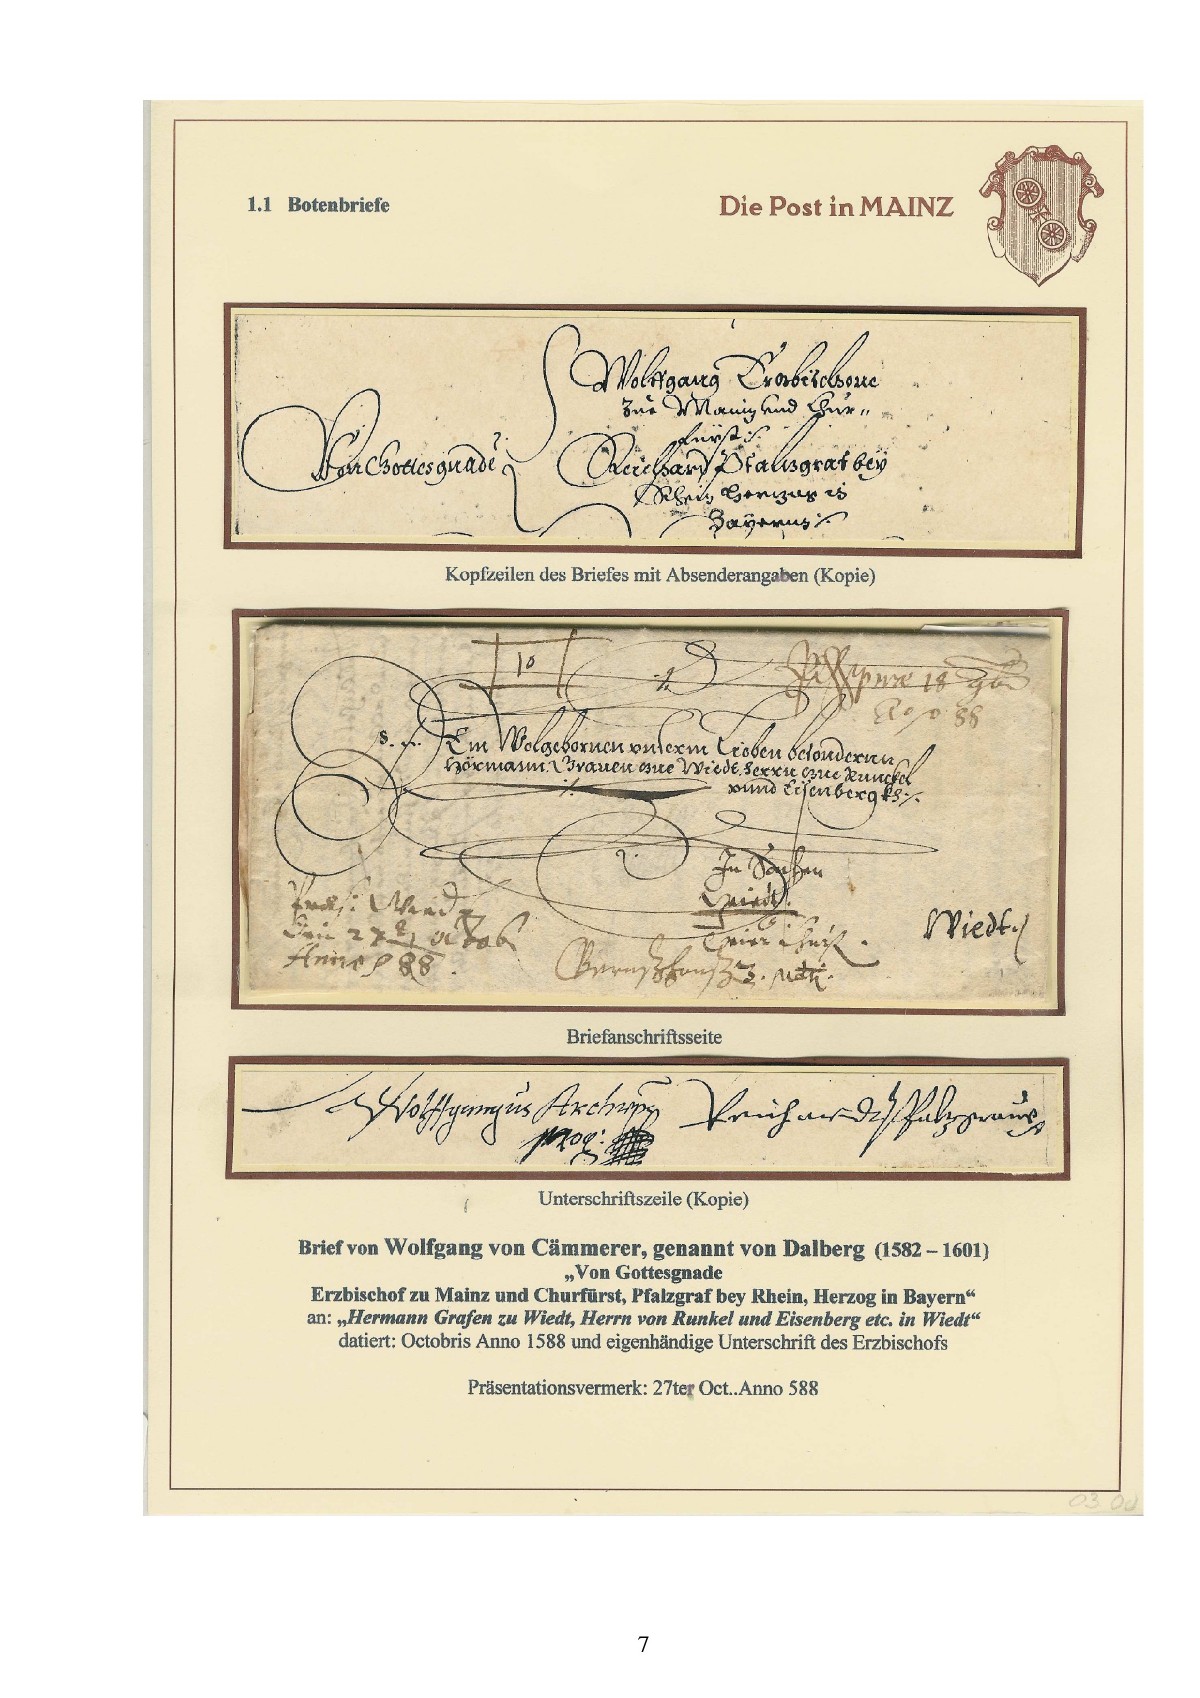 1.1 Botenbriefe
Die Post in MAINZ
Wolffgang Ertzbischove
zue Maintz und Chur-
fürst
Von Gottesgnade
Reichard Pfaltzgraf bey
Rhein Hertzog in
Bayern
Kopfzeilen des Briefes mit Absenderangaben (Kopie)
10
18
88
Em Wolgebornen unserm Lieben besondernn
Hermann Graven zue Wiedt. Herrn zue Runckel
vnnd Eisenberg
In Sachen
Wiedt
Anno 88
Briefanschriftsseite
Wolffgangus Reichard Pfaltzgraue
Unterschriftszeile (Kopie)
Brief von Wolfgang von Cämmerer, genannt von Dalberg (1582 – 1601)
„Von Gottesgnade
Erzbischof zu Mainz und Churfürst, Pfalzgraf bey Rhein, Herzog in Bayern“
an: „Hermann Grafen zu Wiedt, Herrn von Runkel und Eisenberg etc. in Wiedt“
datiert: Octobris Anno 1588 und eigenhändige Unterschrift des Erzbischofs
Präsentationsvermerk: 27ter Oct..Anno 588
03 00
7